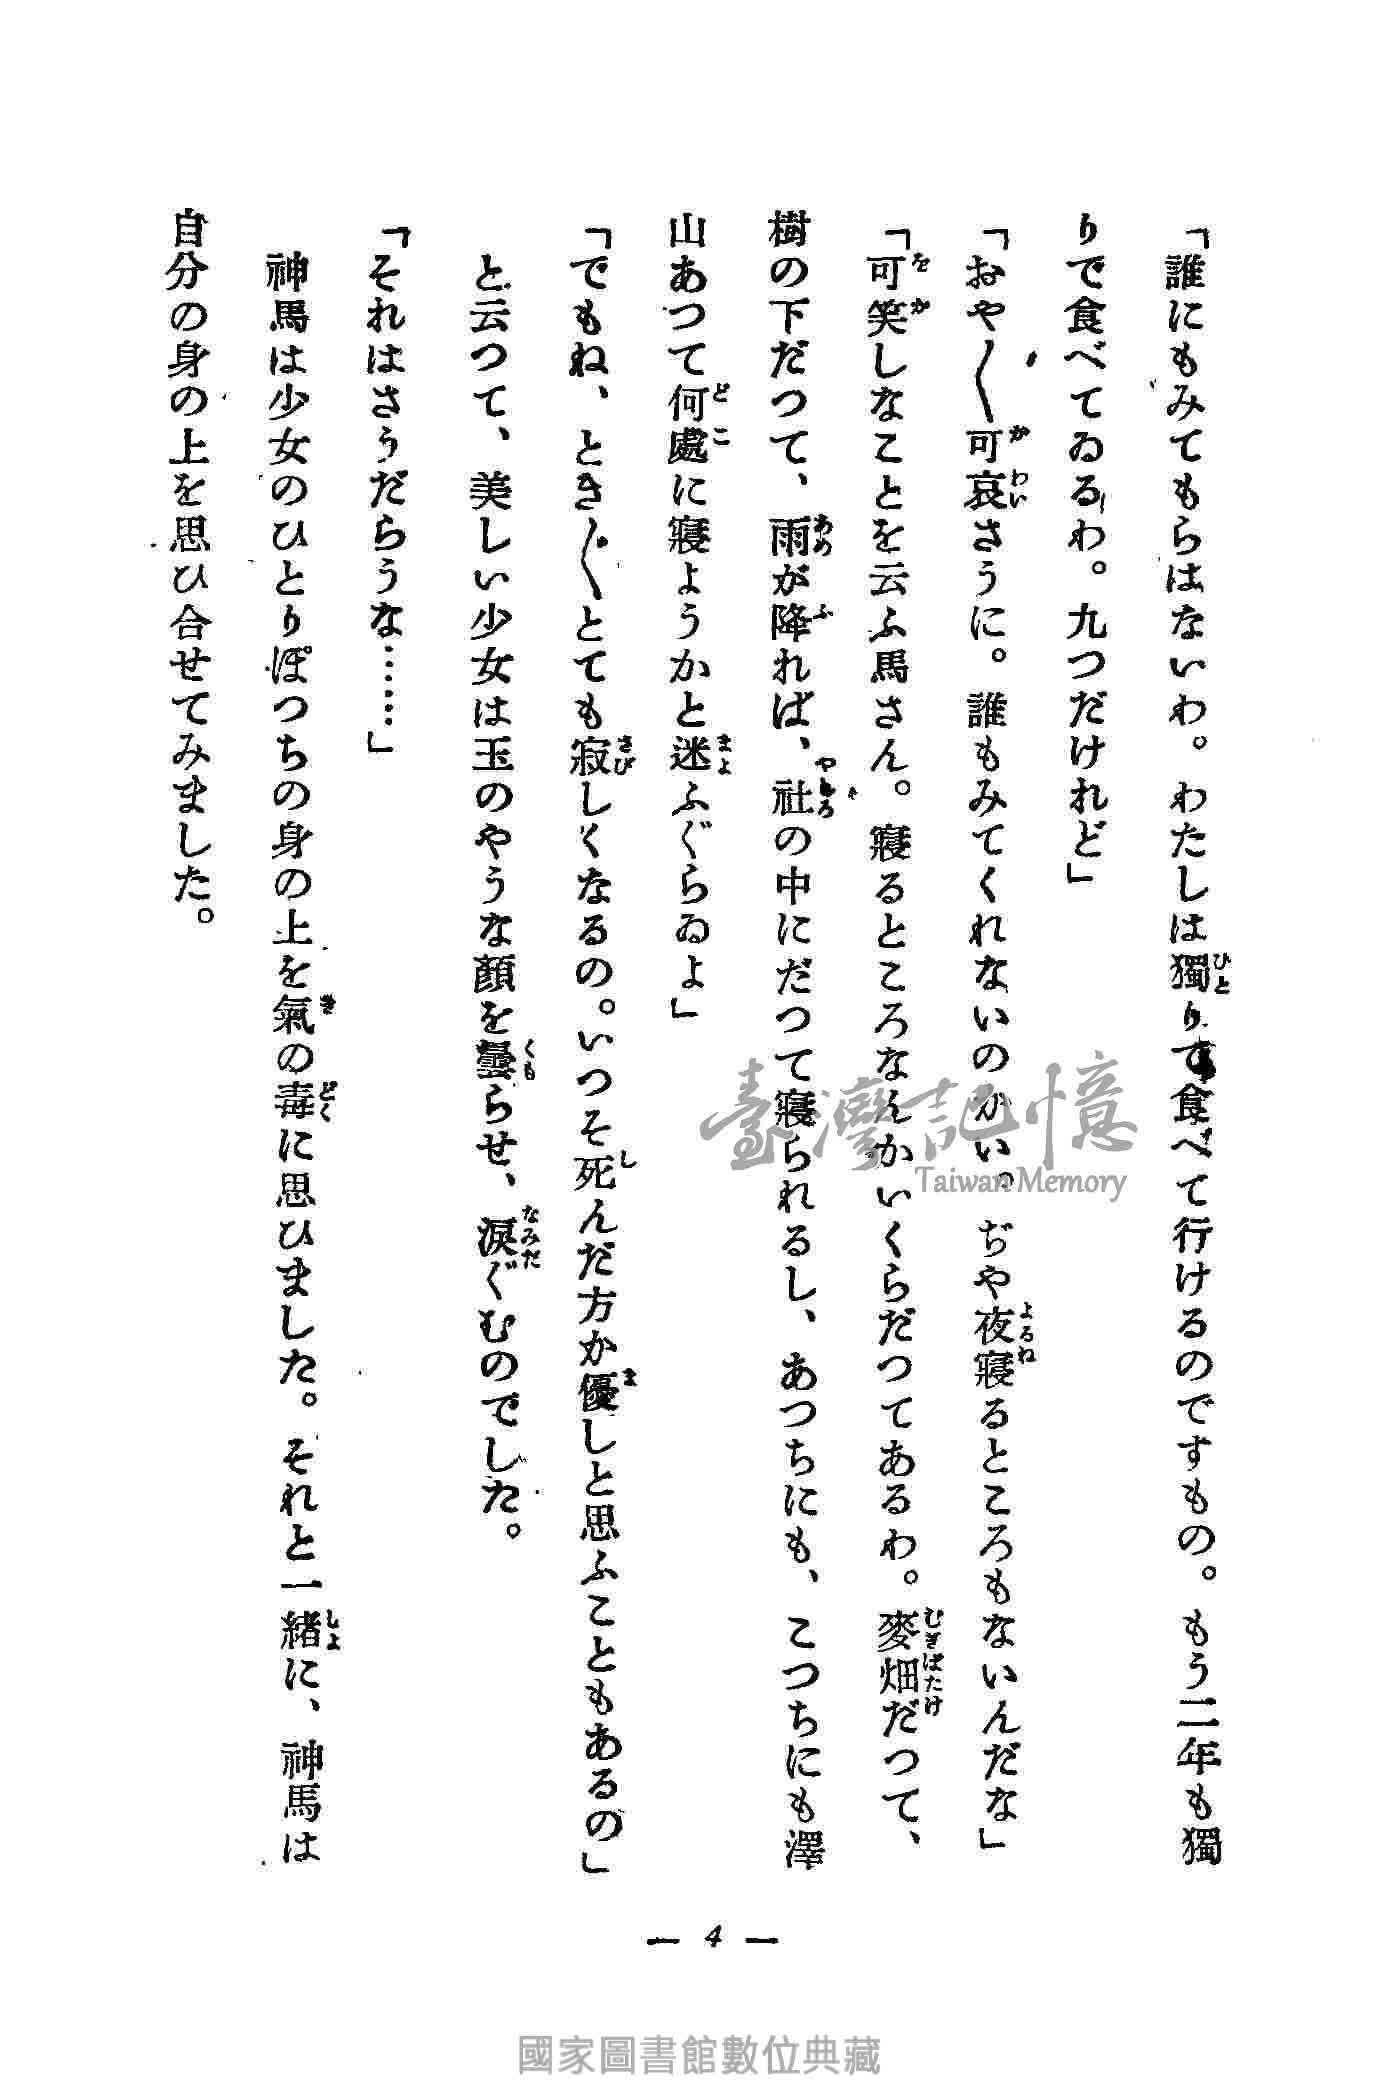 「誰にもみてもらはないわ。わたしは獨りで食べて行けるのですもの。もう二年も獨
りで食べてゐるわ。九つだけれど」
「おや〳〵可哀さうに。誰もみてくれないのかい。ぢや夜寢るところもないんだな」
「可笑しなことを云ふ馬さん。寢るところなんかいくらだつてあるわ。麥畑だつて、
樹の下だつて、雨が降れば、社の中にだつて寢られるし、あつちにも、こつちにも澤
山あつて何處に寢ようかと迷ふぐらゐよ」
「でもね、とき〴〵とても寂しくなるの。いつそ死んだ方か優しと思ふこともあるの」
と云つて、美しい少女は玉のやうな顏を曇らせ、淚ぐむのでした。
「それはさうだらうな……」
神馬は少女のひとりぽつちの身の上を氣の毒に思ひました。それと一緒に、神馬は
自分の身の上を思ひ合せてみました。
— 4 —
臺灣記憶
Taiwan Memory
國家圖書館數位典藏